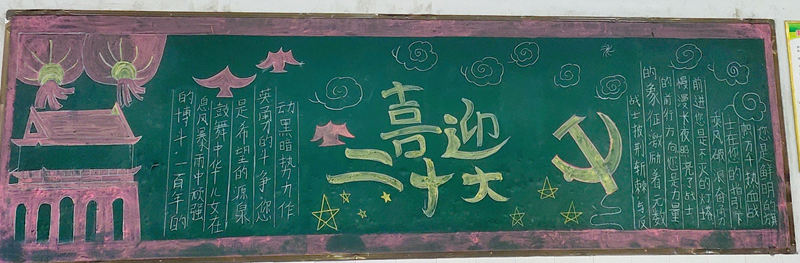 喜迎
二十大
您是鲜明的旗
帜万千热血战
士在您的指引下
乘风破浪奋勇
前进您是不灭的灯塔
漫漫长夜照亮了战士
的前行方向您是力量
的象征激励着无数
战士披荆斩棘与反
动黑暗势力作
英勇的斗争您
是希望的源泉
鼓舞中华儿女在
息风暴雨中顽强
的博斗一百年的